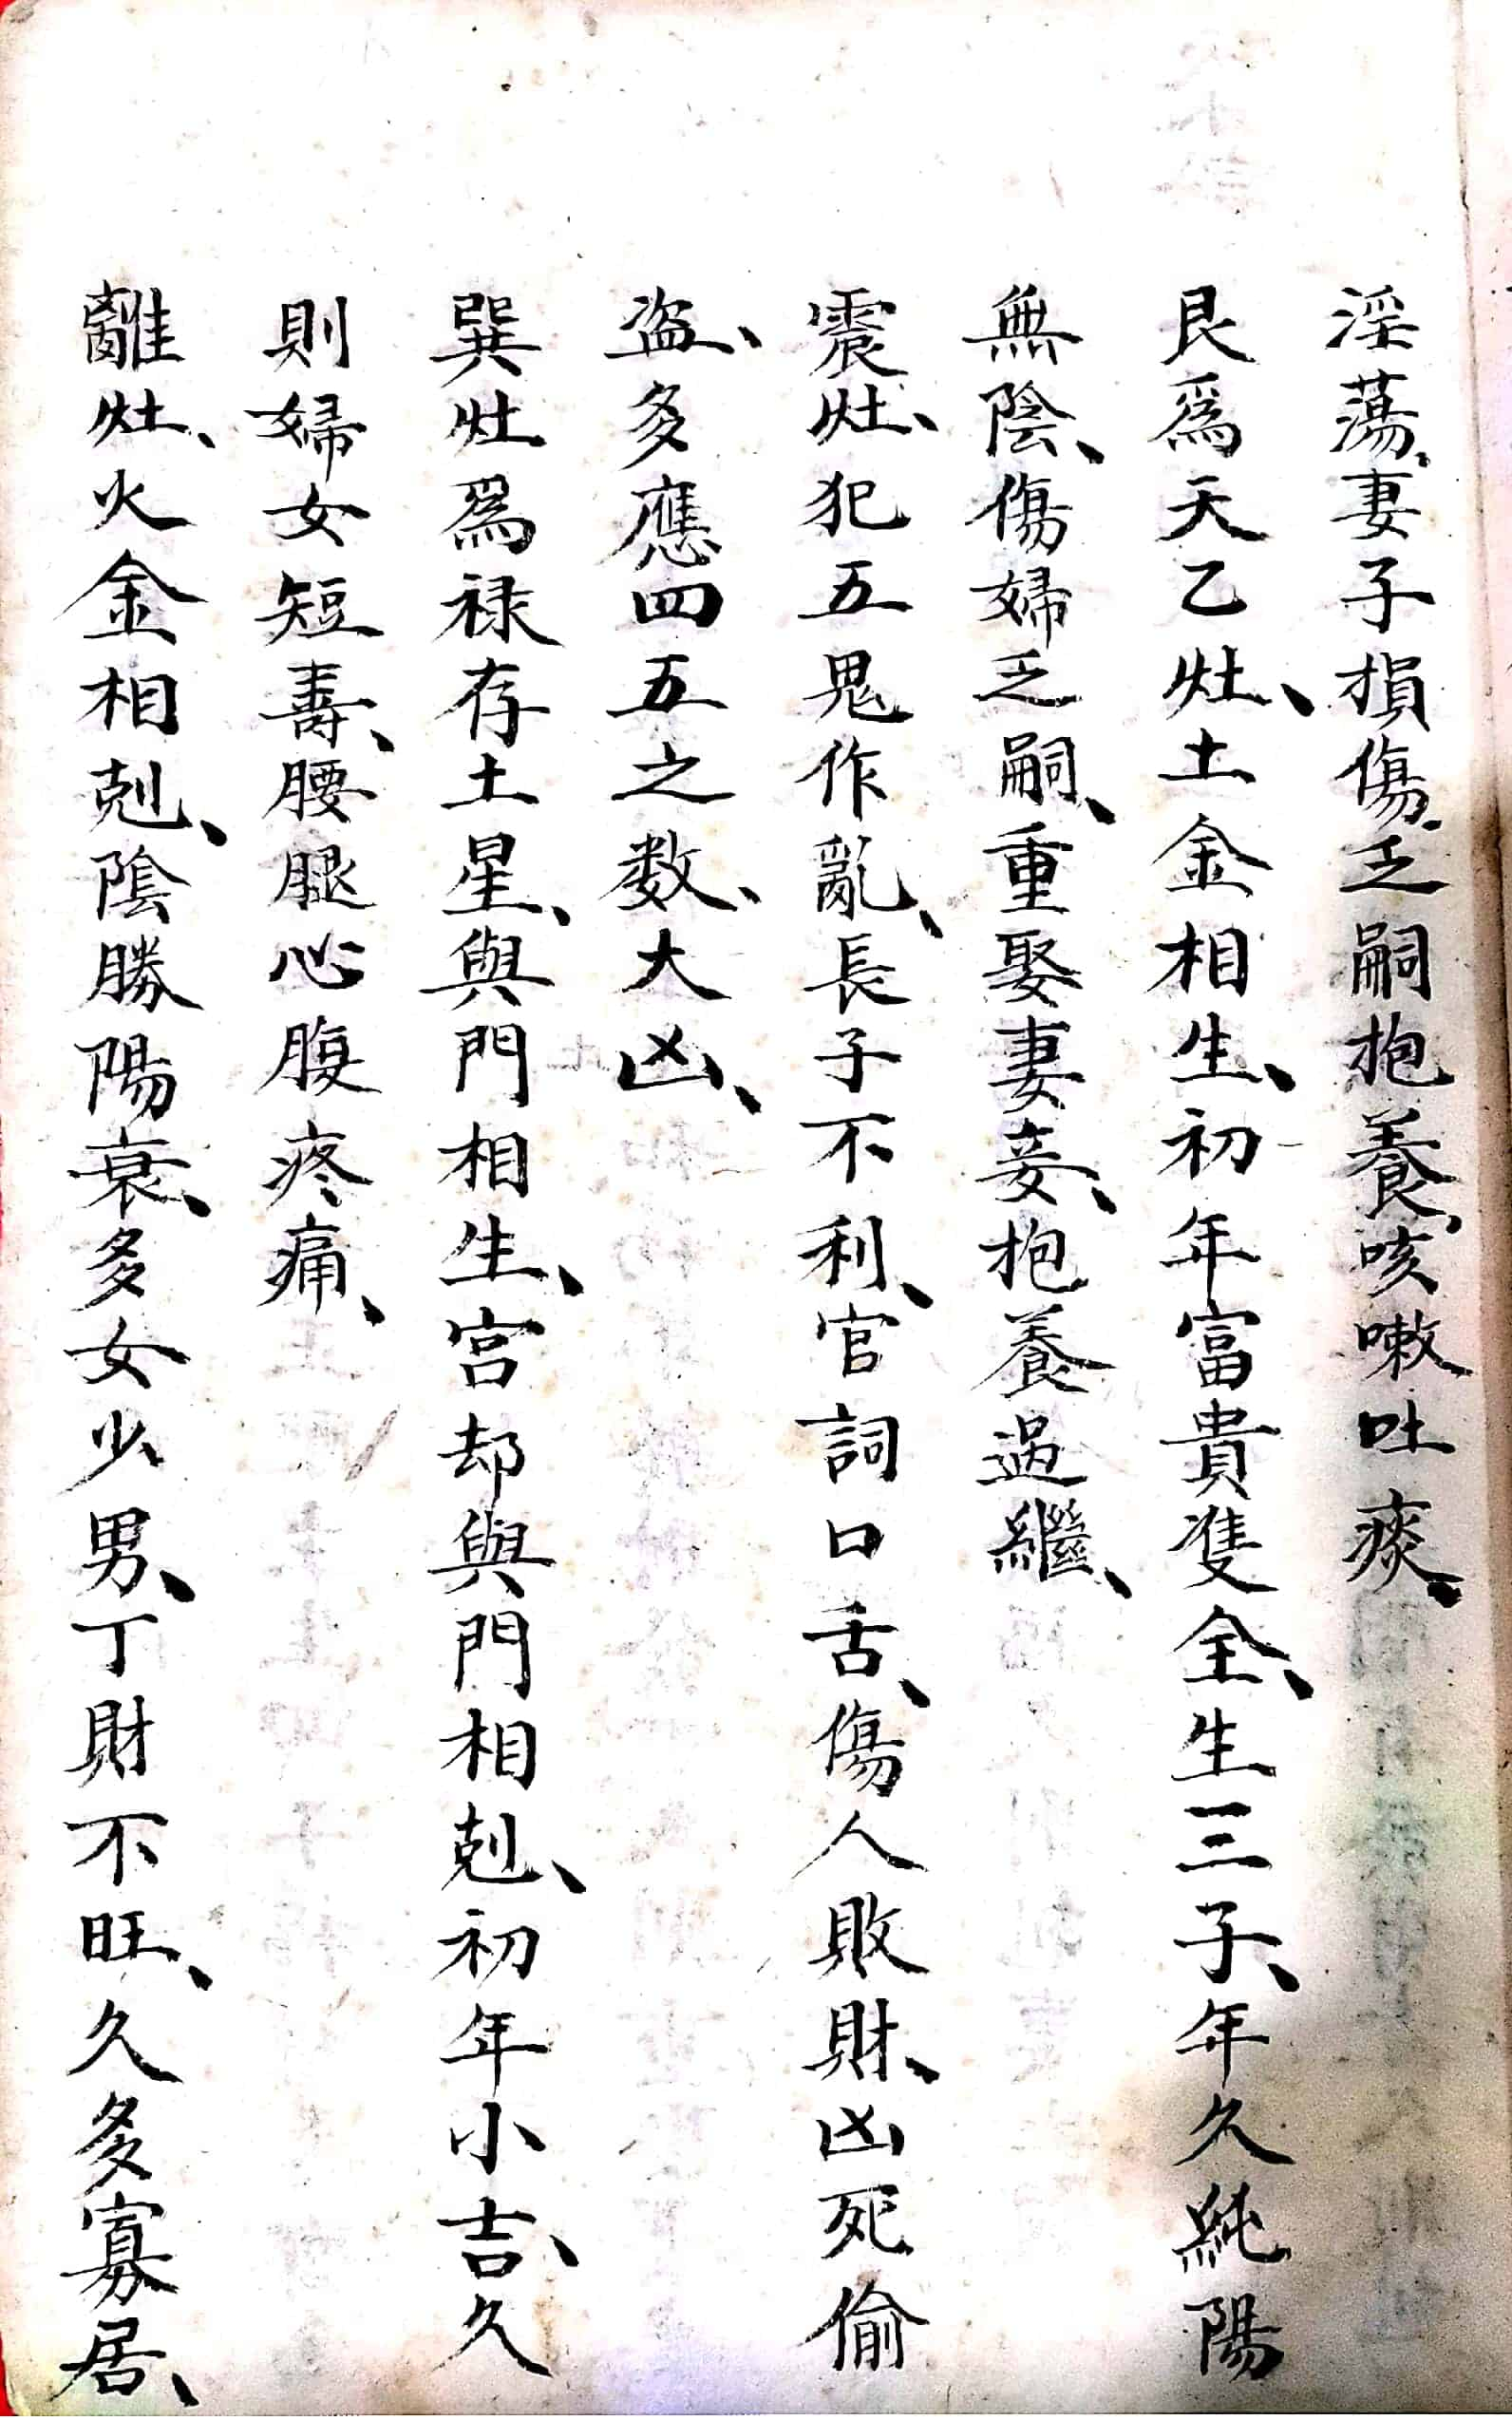 淫蕩、妻子損傷、乏嗣抱養、咳嗽吐痰、
艮爲天乙灶、土金相生、初年富貴隻全、生三子、年久純陽
無陰、傷婦乏嗣、重娶妻妾、抱養過繼、
震灶、犯五鬼作亂、長子不利、官詞口舌、傷人敗財、凶死偷
盗、多應四五之数、大凶、
巽灶爲禄存土星、與門相生、宮却與門相剋、初年小吉、久
則婦女短壽、腰腿心腹疼痛、
離灶、火金相剋、陰勝陽衰、多女少男、丁財不旺、久多寡居、